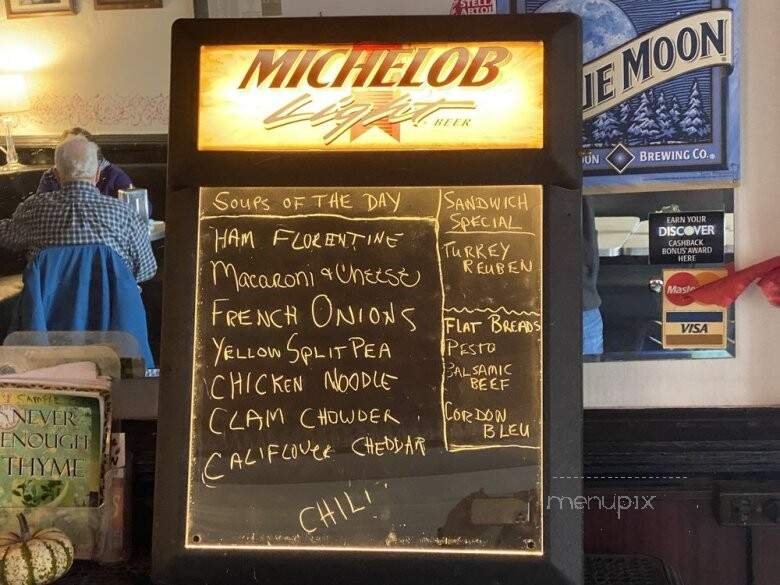 STELLA
ARTOI
MICHELOB
Light
BEER
E MOON
BREWING CO.
EARN YOUR
DISCOVER
CASHBACK
BONUS AWARD
HERE
Maste
VISA
SOUPS OF THE DAY
HAM FLORENTINE
MACARONI & CHEESE
FRENCH ONIONS
YELLOW SPLIT PEA
CHICKEN NOODLE
CLAM CHOWDER
CALIFLOWER CHEDDAR
CHILI
SANDWICH
SPECIAL
TURKEY
REUBEN
FLAT BREADS
PESTO
BALSAMIC
BEEF
CORDON
BLEU
SAMPLE
NEVER
ENOUGH
THYME
menupix